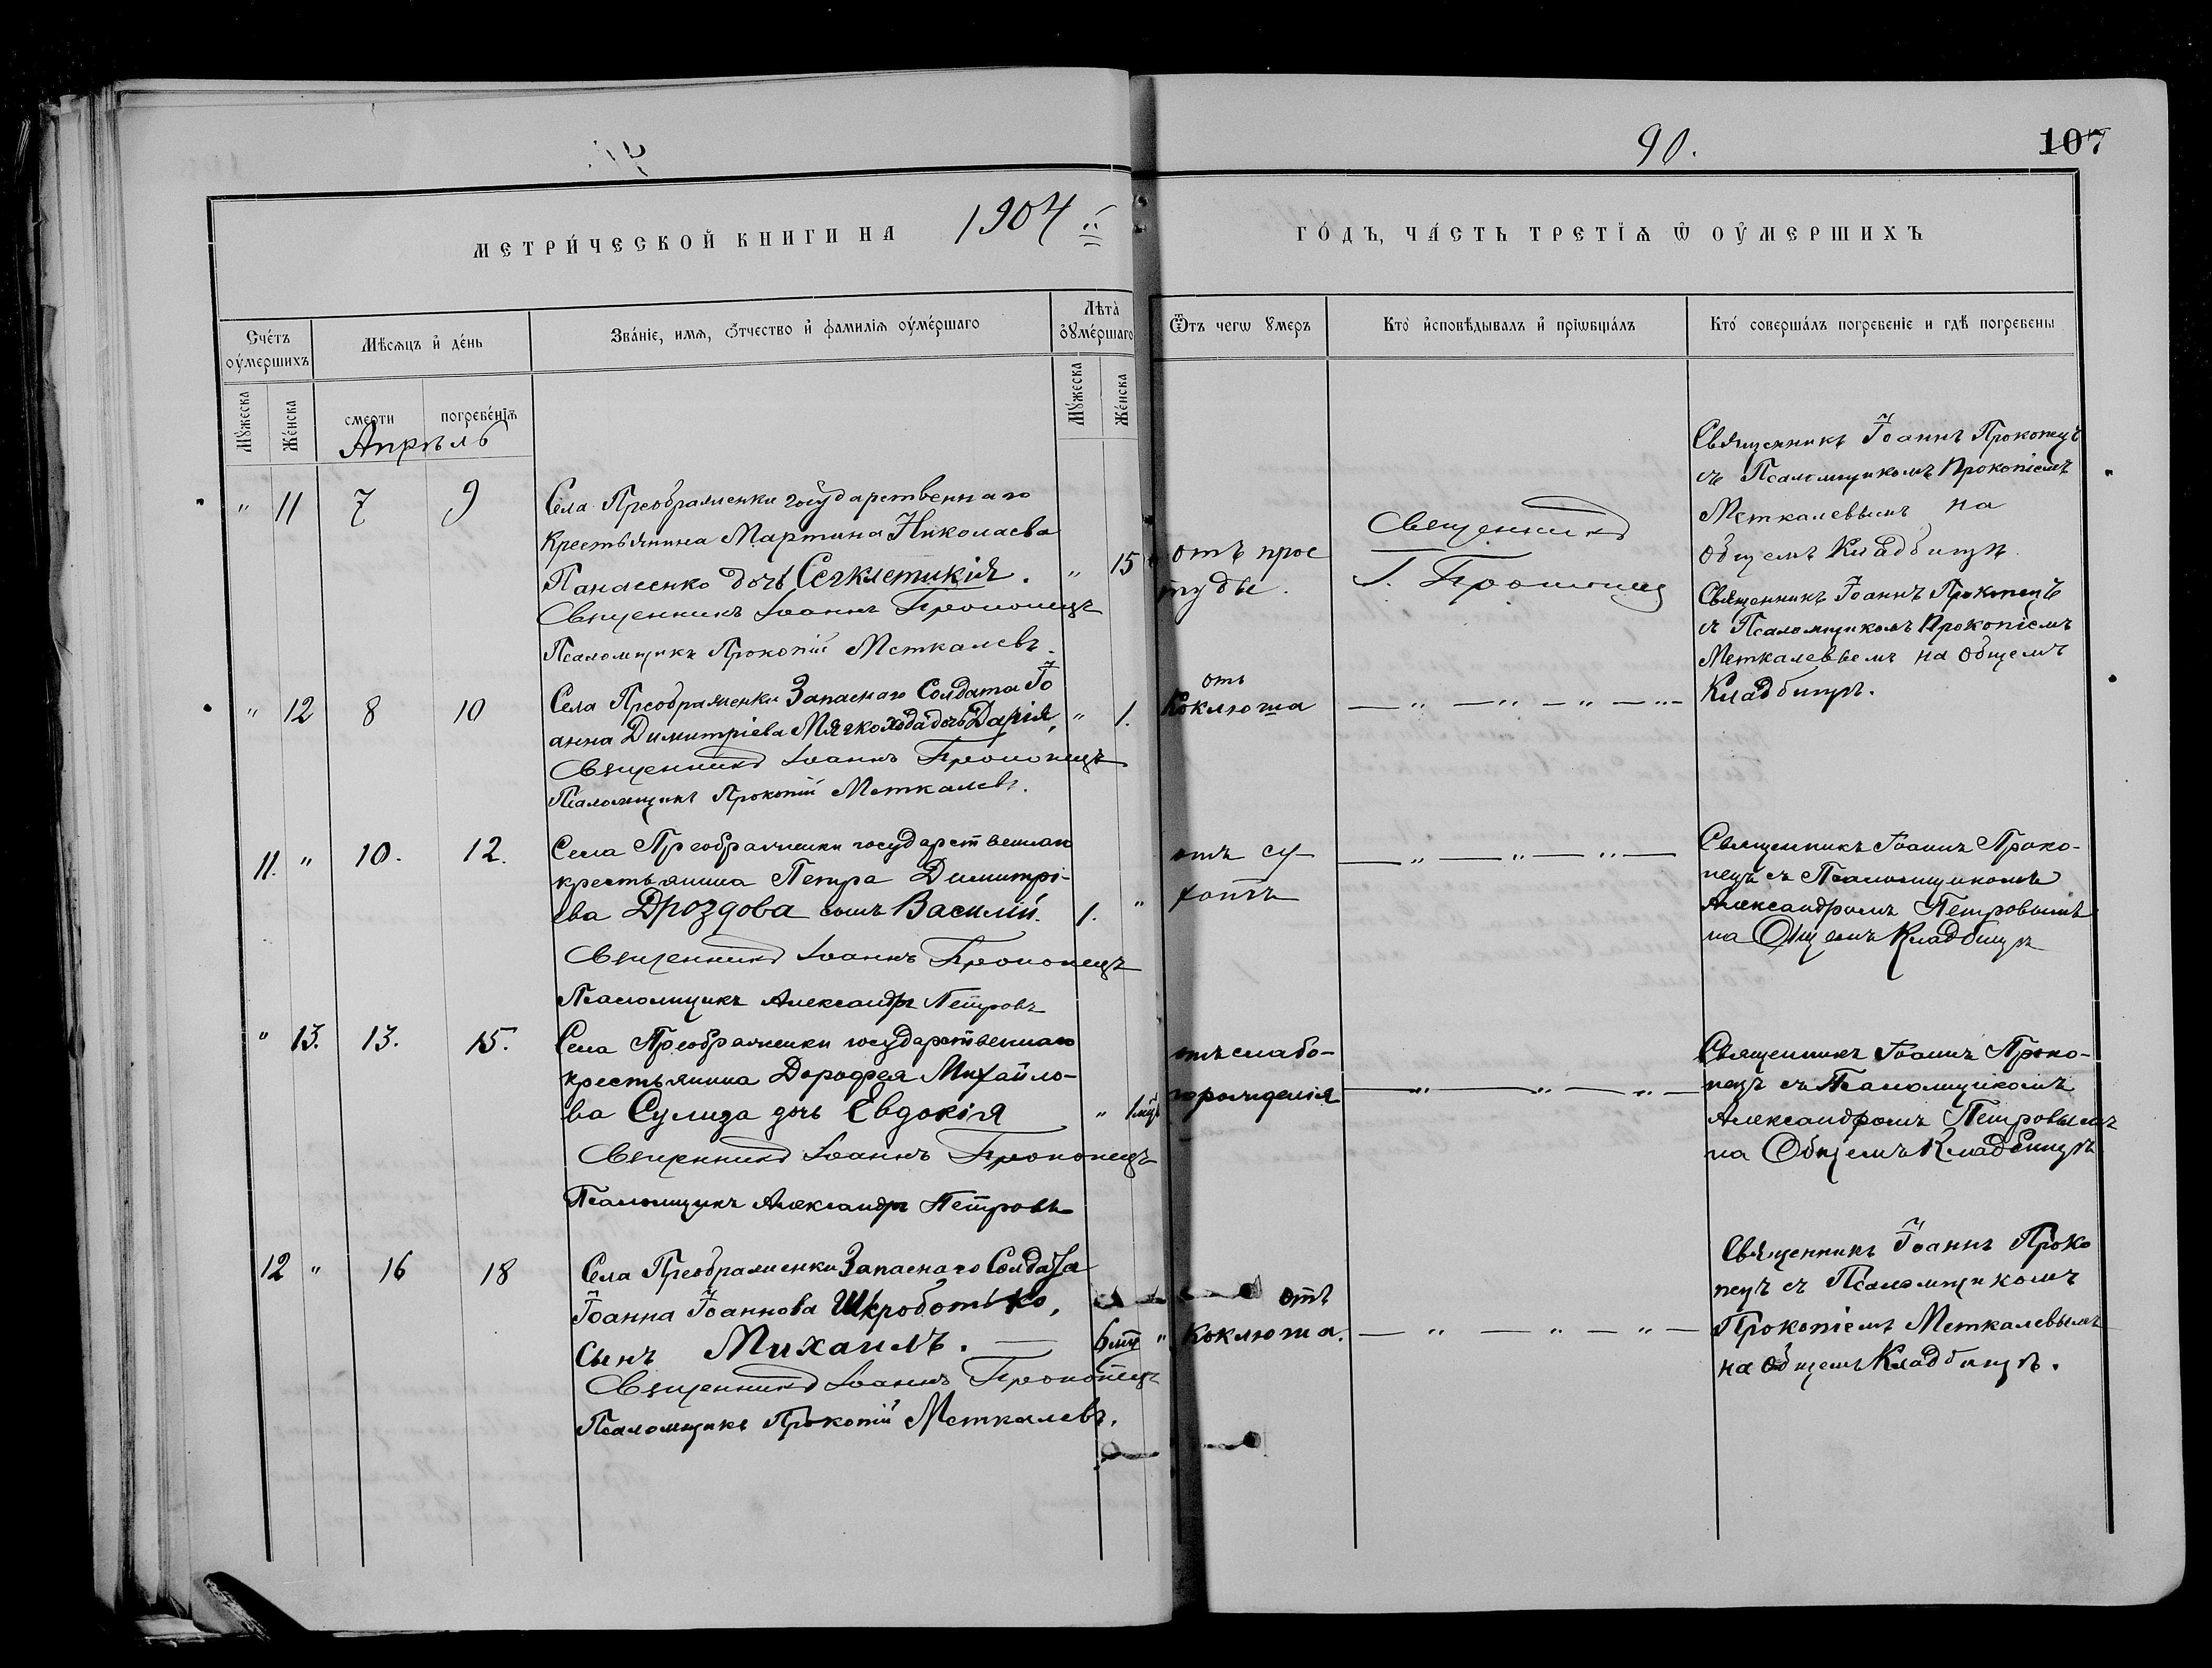 90.
107
МЕТРИ́ЧЕСКОЙ КНИГИ НА 1904 й
ГО́ДЪ, ЧА́СТЬ ТРЕТІѦ Ѿ ОУ҆МЕРШИХЪ
Сче́тъ оу҆ме́ршихъ
Мѣсѧцъ и҆ де́нь
Зва́нїе, имѧ, ѻ҆тчество и҆ фамилїѧ оу҆ме́ршаго
Лѣта̀ оу҆ме́ршаго
Ѿтъ чегѡ ᲂумеръ
Кто̀ и҆сповѣдывалъ и҆ прїѡбща́лъ
Кто́ соверша́лъ погребенїе и гдѣ погребены
Мꙋ́жеска
Же́нска
смерти
погребе́нїѧ
Мꙋ́жеска
Же́нска
Апрѣль
" 11 7 9
Села Преображенки государственнаго
крестьянина Мартина Николаева
Панасенко дочь Сегклетикія. " 15
Священникъ Іоаннъ Прокопецъ
Псаломщикъ Прокопій Меткалевъ.
отъ прос
туды.
Священникъ
І. Прокопец
Священникъ Іоаннъ Прокопецъ
съ Псаломщикомъ Прокопіемъ
Меткалевымъ на
общемъ Кладбищѣ.
" 12 8 10
Села Преображенки Запаснаго Солдата Іо
анна Димитріева Мягкохода дочь Дарія, " 1.
Священникъ Іоаннъ Прокопецъ
Псаломщикъ Прокопій Меткалевъ.
отъ
Коклюша
— " — " — " — " —
Священникъ Іоаннъ Прокопецъ
съ Псаломщикомъ Прокопіемъ
Меткалевымъ на общемъ
Кладбищѣ.
11. " 10. 12.
Села Преображенки государственнаго
крестьянина Петра Димитрі-
ева Дроздова сынъ Василій. 1. "
Священникъ Іоаннъ Прокопецъ
Псаломщикъ Александръ Петровъ
отъ су-
хотъ
— " — " — " —
Священникъ Іоаннъ Проко-
пецъ съ Псаломщикомъ
Александромъ Петровымъ
на Общемъ Кладбищѣ
" 13. 13. 15.
Села Преображенки государственнаго
крестьянина Дорофея Михайло-
ва Сулиза дочь Евдокія " 1 мц
Священникъ Іоаннъ Прокопецъ
Псаломщикъ Александръ Петровъ
отъ слабо-
рожденія
— " — " — " —
Священникъ Іоаннъ Проко-
пецъ съ Псаломщикомъ
Александромъ Петровымъ
на Общемъ Кладбищѣ
12 " 16 18
Села Преображенки Запаснаго Солдата
Іоанна Іоаннова Шкроботько,
Сынъ Михаилъ. — 6 мц "
Священникъ Іоаннъ Прокопецъ
Псаломщикъ Прокопій Меткалевъ.
отъ
Коклюша.
— " — " — " —
Священникъ Іоаннъ Проко
пецъ съ Псаломщикомъ
Прокопіемъ Меткалевымъ
на общемъ Кладбищѣ.